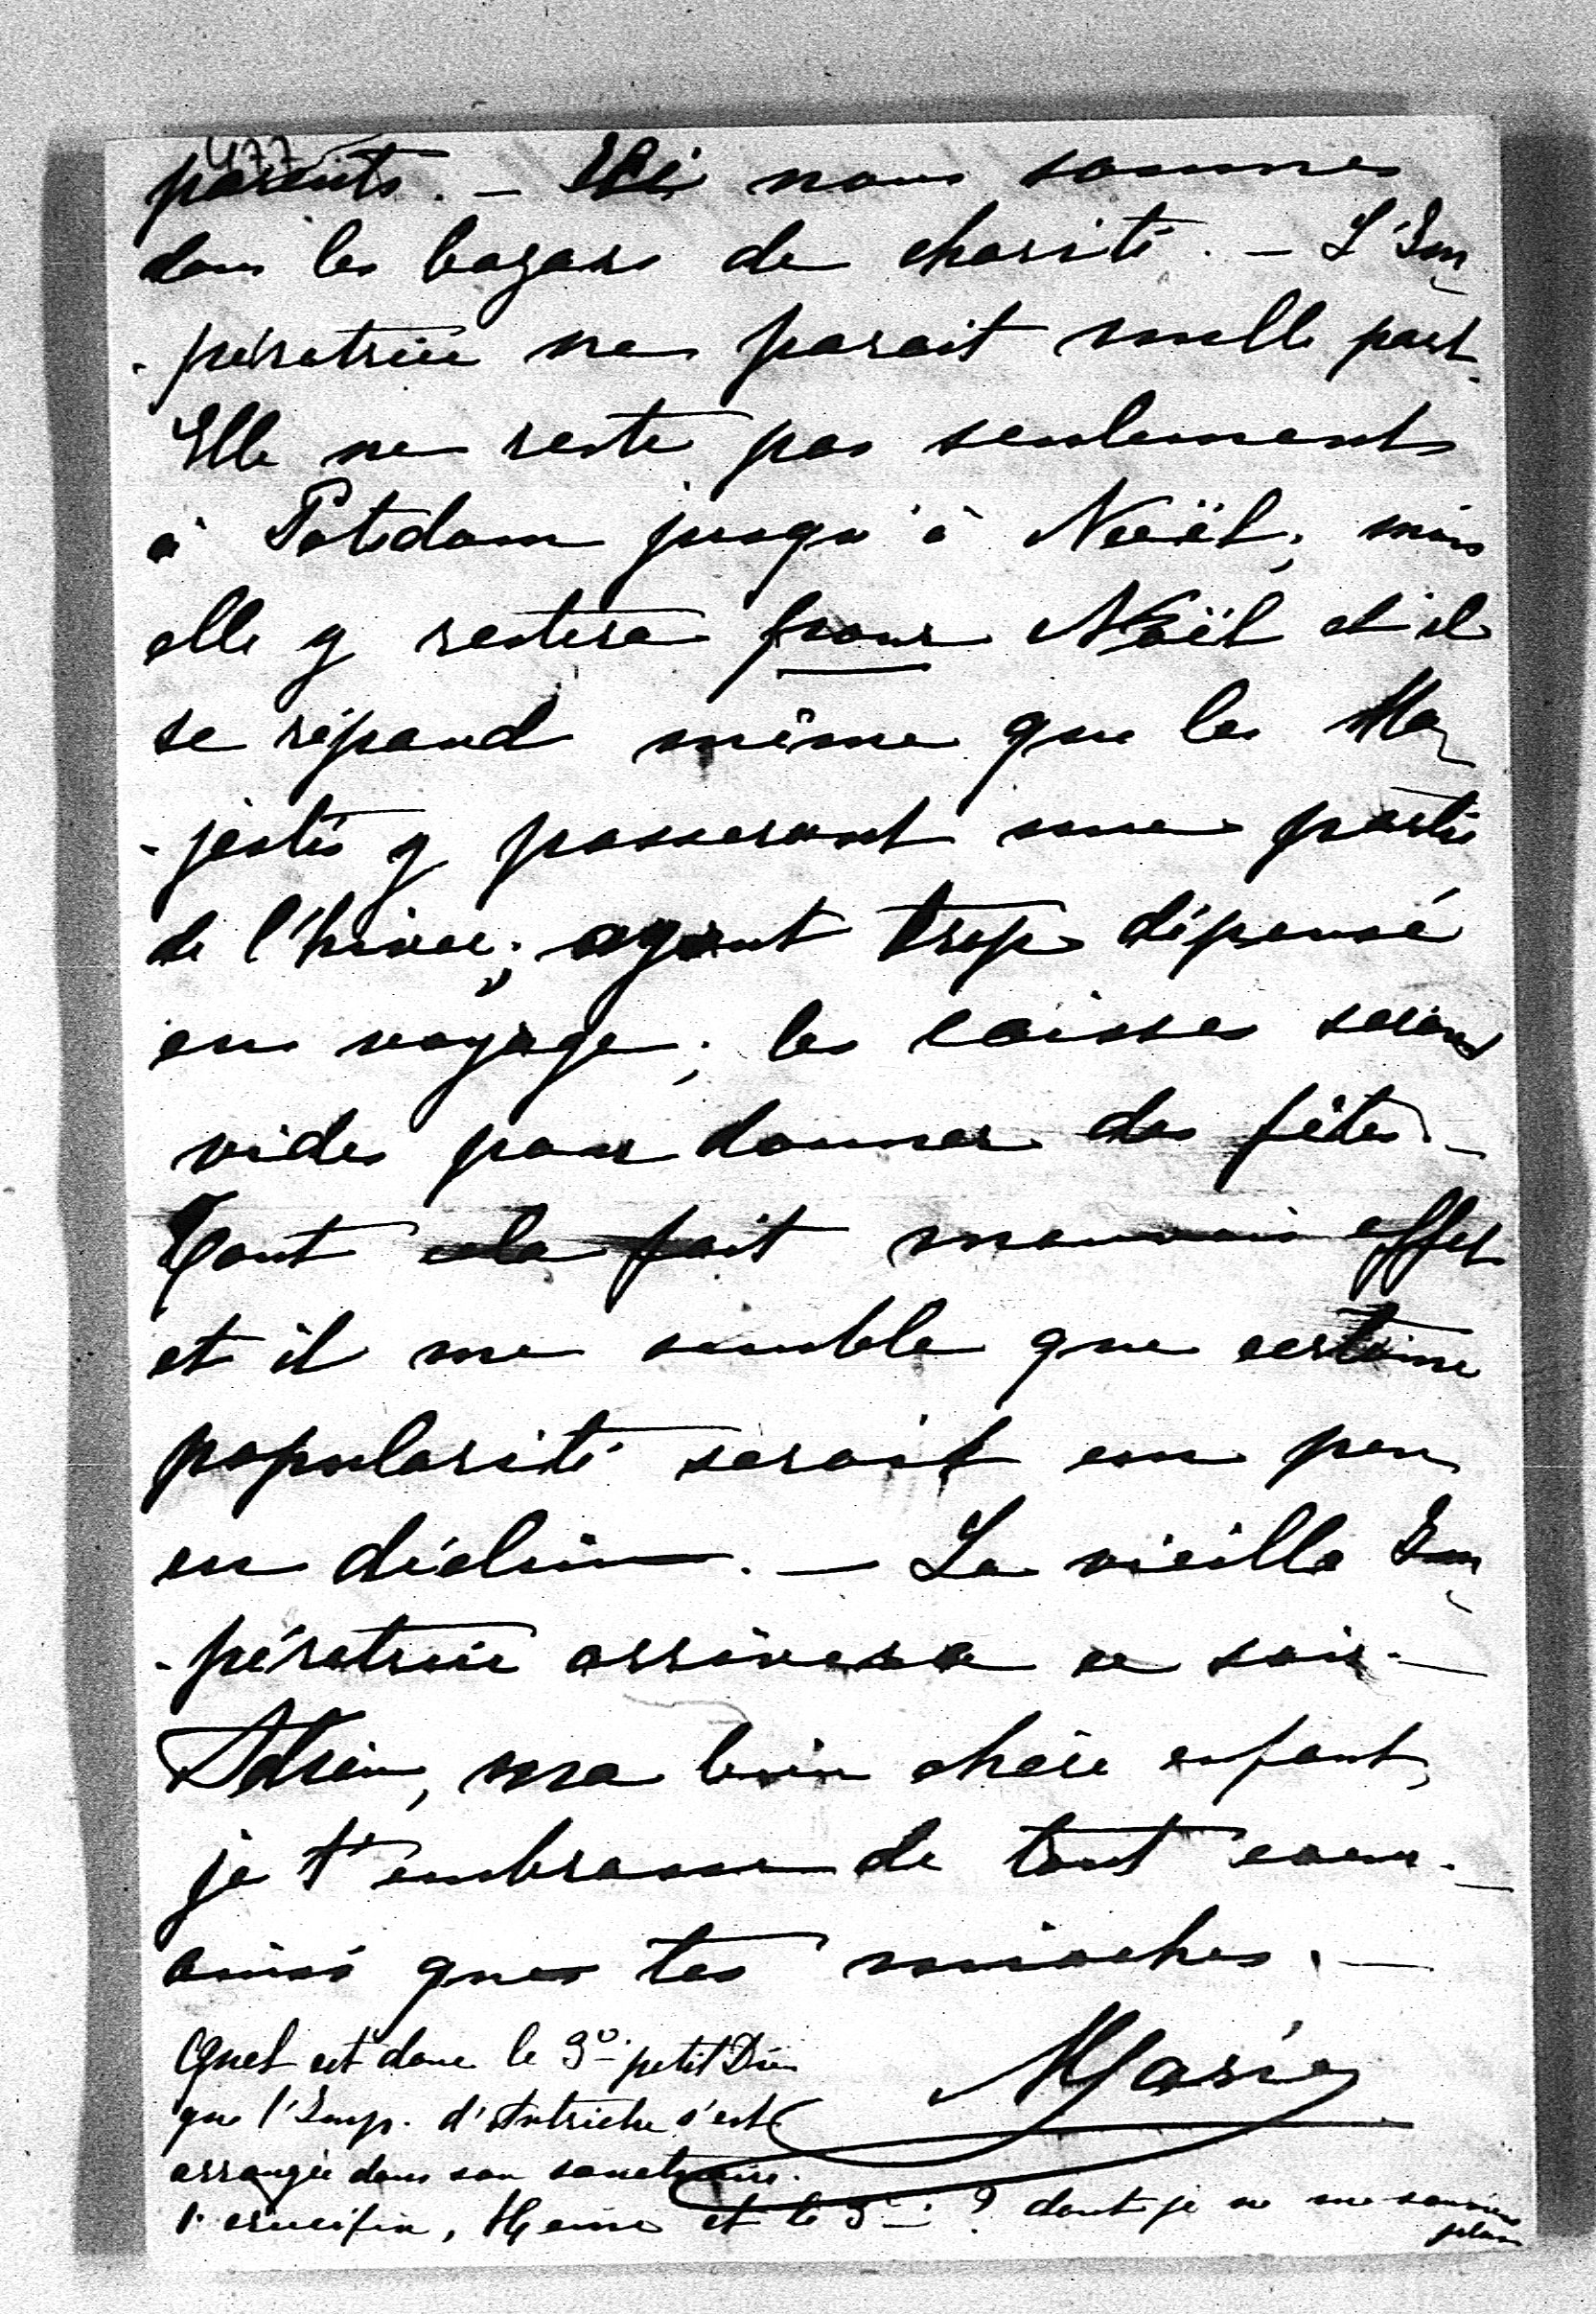 477
parents. – Ici nous sommes
dans les bazars de charité. – L'Im-
-pératrice ne parait nulle part.
Elle ne reste pas seulement
à Potsdam jusqu'à Noël; mais
elle y restera pour Noël et il
se répand même que les Ma-
-jestés y passeront une partie
de l'hiver; ayant trop dépensé
en voyage; les caisses seraient
vides pour donner des fêtes. –
Tout cela fait mauvais effet
et il me semble que certaine
popularité serait un peu
en déclin. – La vieille Im-
-pératrice arrivera ce soir. –
Adieu, ma bien chère enfant,
je t'embrasse de tout coeur. –
ainsi que tes mioches. –
Quel est donc le 3º petit Dieu
que l'Imp. d'Autriche s'est
arrangée dans son sanctuaire.
1 crucifix, Heine et le 3º ? dont je ne me souviens
plus
Marie